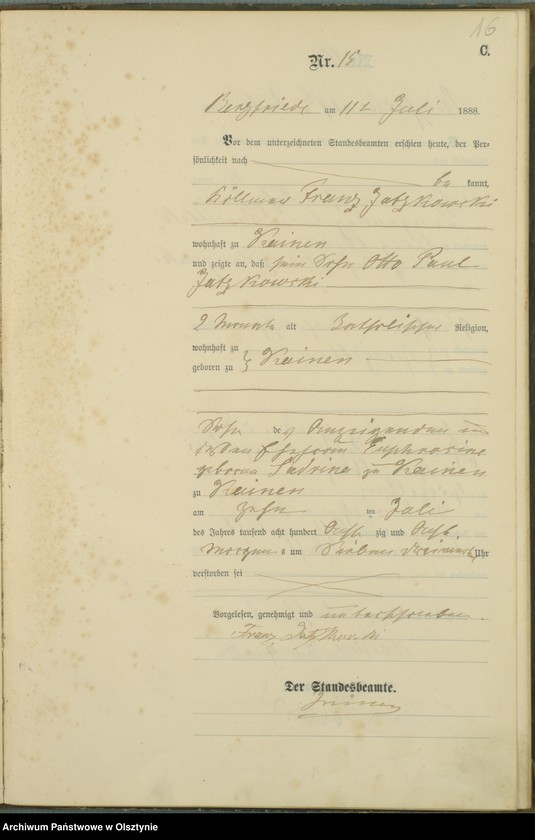 16
C.
Nr. 15
Bergfriede am 11t Juli 1888.
Vor dem unterzeichneten Standesbeamten erschien heute, der Per-
sönlichkeit nach
be kannt,
Köllmer Franz Jatzkowski
wohnhaft zu Kainen
und zeigte an, daß sein Sohn Otto Paul
Jatzkowski
2 Monate alt katholischer Religion,
wohnhaft zu
geboren zu } Kainen
Sohn des Anzeigenden und
dessen Ehefrau Euphrosine
geborne zu Kainen
zu Kainen
am zehn ten Juli
des Jahres tausend acht hundert Acht zig und Acht
Morgens um Sieben Uhr
verstorben sei
Vorgelesen, genehmigt und unterschrieben.
Franz Jatzkowski
Der Standesbeamte.
Archiwum Państwowe w Olsztynie